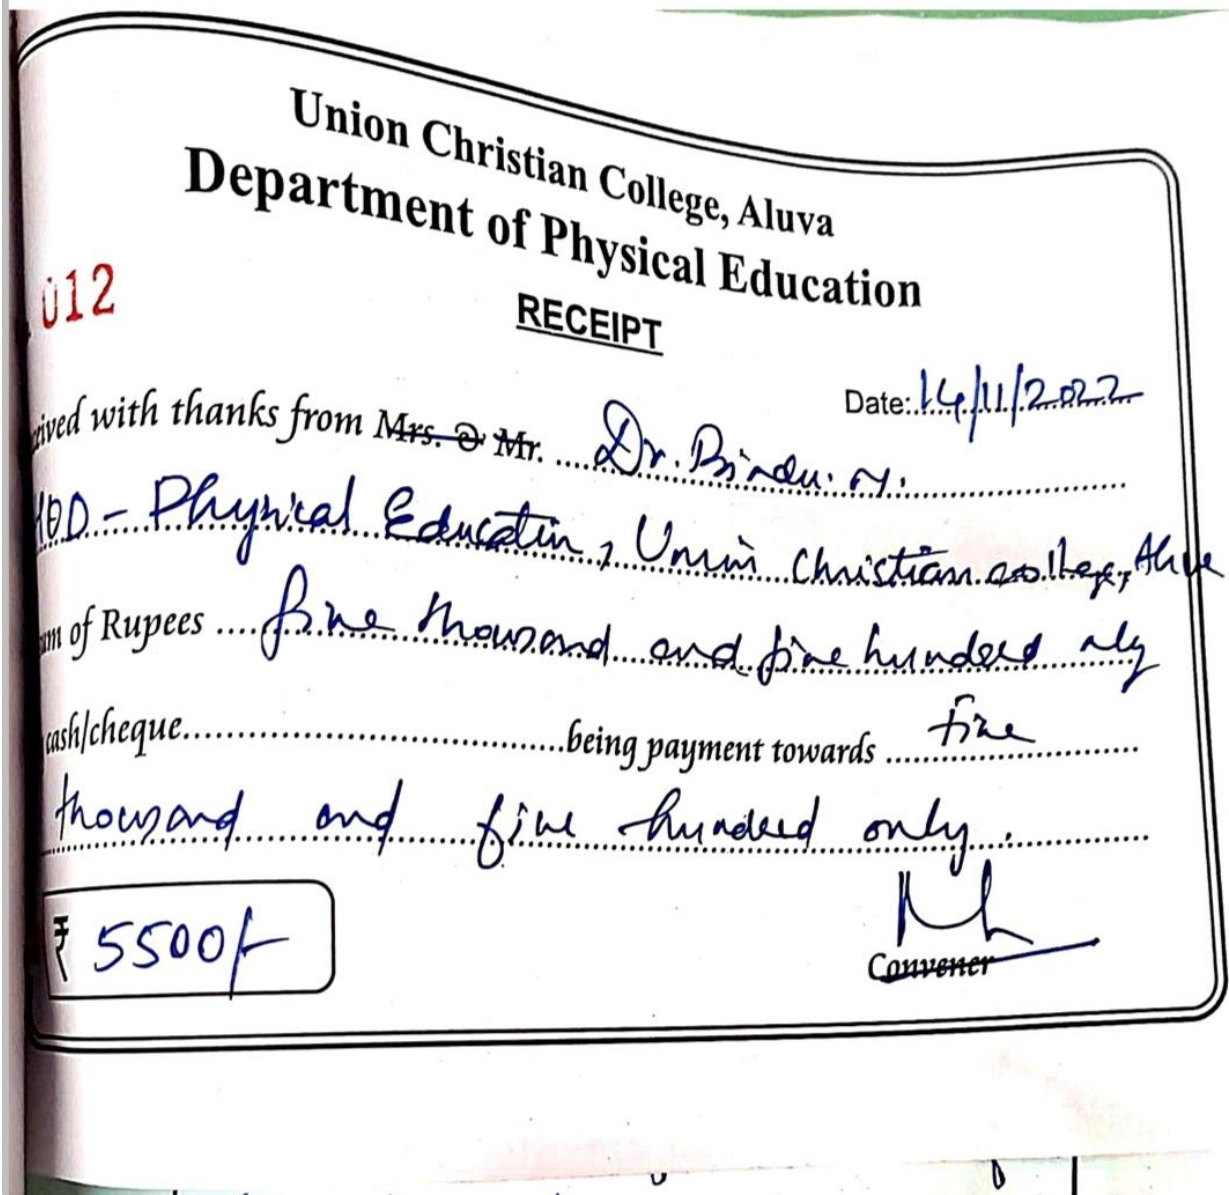 Union Christian College, Aluva
Department of Physical Education
012
RECEIPT
Date: 14/11/2022
eived with thanks from Mrs. & Mr. Dr. Bindu. M.
HOD - Physical Education, Union Christian college, Aluva
um of Rupees five thousand and five hundred only
cash/cheque being payment towards five
thousand and five hundred only.
₹ 5500/-
Convener